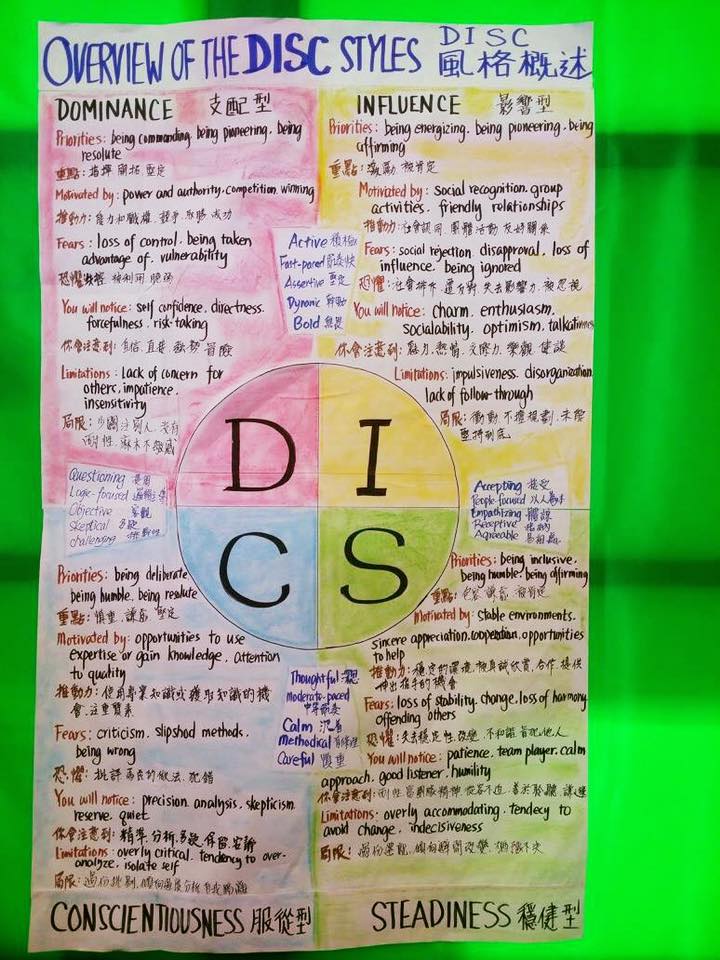 OVERVIEW OF THE DISC STYLES DISC
風格概述
DOMINANCE 支配型
Priorities: being commanding. being pioneering. being
resolute
重點: 指揮 開拓 堅定
Motivated by: power and authority. competition. winning
推動力: 競爭 取勝 成功
Fears: loss of control. being taken
advantage of. vulnerability
恐懼: 被利用 脆弱
You will notice: self confidence. directness.
forcefulness. risk-taking
你會注意到: 自信 直接 冒險
Limitations: lack of concern for
others. impatience.
insensitivity
局限: 少關注別人 沒有
耐性
INFLUENCE 影響型
Priorities: being energizing. being pioneering. being
affirming
重點: 被肯定
Motivated by: social recognition. group
activities. friendly relationships
推動力: 社會認同 團體活動 友好關係
Fears: social rejection. disapproval. loss of
influence. being ignored
恐懼: 社會排斥 遭反對 失去影響力 被忽視
You will notice: charm. enthusiasm.
socialability. optimism. talkativeness
你會注意到: 魅力 熱情 交際力 樂觀 健談
Limitations: impulsiveness. disorganization
lack of follow-through
局限: 衝動 不擅規劃 未能
堅持到底
Active 積極
Fast-paced 節奏快
Assertive 堅定
Dynamic
Bold 無畏
D I
C S
Questioning
Logic-focused
Objective 客觀
Skeptical 多疑
challenging 挑戰性
Accepting 接受
People-focused 以人為本
Empathizing
Receptive
Agreeable
Priorities: being deliberate
being humble. being resolute
重點: 慎重 謙虛 堅定
Motivated by: opportunities to use
expertise or gain knowledge. attention
to quality
推動力: 使用專業知識或獲取知識的機
會 注重質素
Fears: criticism. slipshod methods.
being wrong
恐懼: 批評 的做法 犯錯
You will notice: precision. analysis. skepticism
reserve. quiet
你會注意到: 精準 分析 多疑 保留 安靜
Limitations: overly critical. tendency to over-
analyze. isolate self
局限: 過份批判 傾向過度分析
CONSCIENTIOUSNESS 服從型
Thoughtful 深思
Moderate-paced
中等節奏
Calm 沉着
Methodical 有條理
Careful 慎重
Priorities: being inclusive.
being humble. being affirming
重點: 包容 謙虛 被肯定
Motivated by: stable environments.
sincere appreciation. cooperation. opportunities
to help
推動力: 穩定的環境 被真誠欣賞 合作 提供
伸出援手的機會
Fears: loss of stability. change. loss of harmony
offending others
恐懼: 失去穩定性 改變 不和諧 冒犯他人
You will notice: patience. team player. calm
approach. good listener. humility
你會注意到: 耐性 團隊精神 善於聆聽 謙遜
Limitations: overly accommodating. tendecy to
avoid change. indecisiveness
局限: 傾向避開改變 猶豫不決
STEADINESS 穩健型